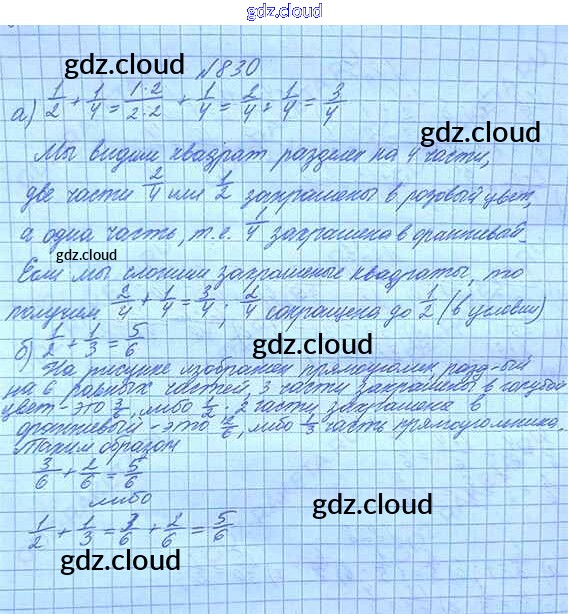 gdz.cloud
gdz.cloud
№830
а) 1/2 + 1/4 = 1·2/2·2 + 1/4 = 2/4 + 1/4 = 3/4
gdz.cloud
Мы видим квадрат разделен на 4 части,
две части 2/4 или 1/2 закрашены в розовый цвет,
gdz.cloud
а одна часть, т.е. 1/4 закрашена в оранжевый.
gdz.cloud
Если мы сложим закрашеные квадраты, то
получим 2/4 + 1/4 = 3/4; 2/4 сокращена до 1/2 (в условии)
gdz.cloud
б) 1/2 + 1/3 = 5/6
На рисунке изображен прямоугольник разд-ый
на 6 равных частей 3 части закрашены в голубой
цвет - это 3/6, либо 1/2; 2 части закрашена в
оранжевый - это 2/6, либо 1/3 часть прямоугольника.
Таким образом
gdz.cloud
3/6 + 2/6 = 5/6
либо
1/2 + 1/3 = 3/6 + 2/6 = 5/6
gdz.cloud
gdz.cloud